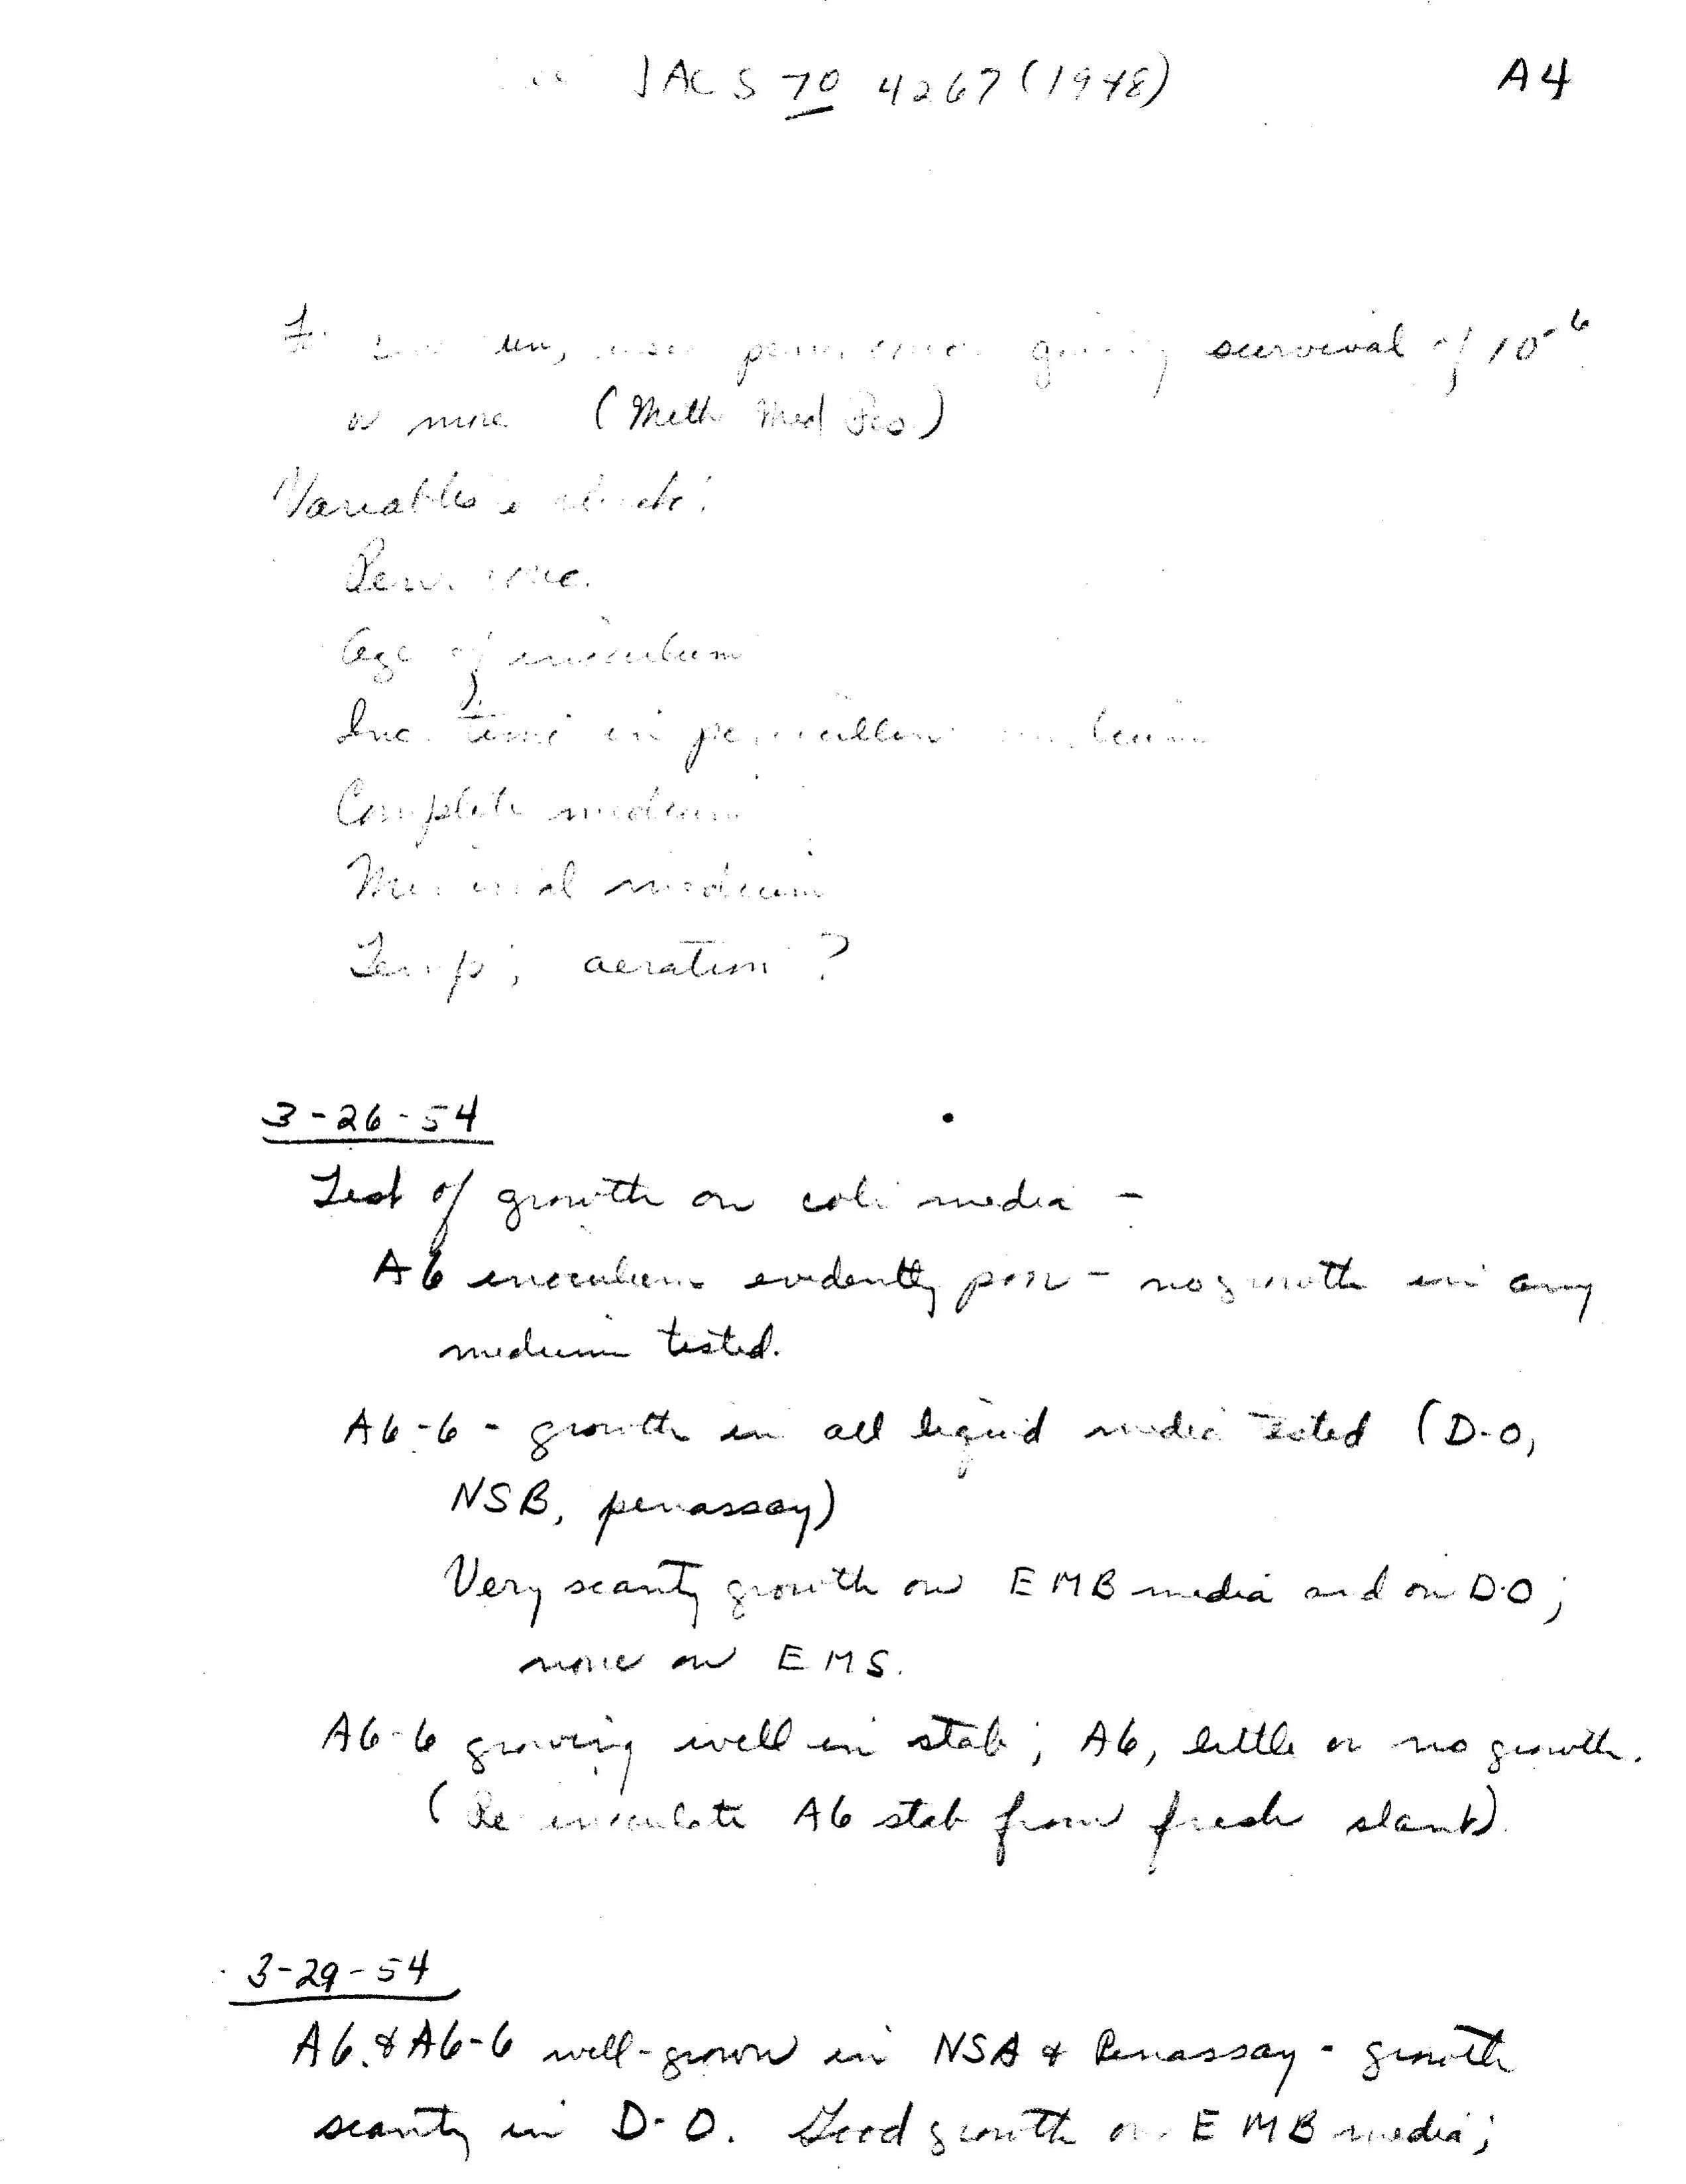 JACS 70 4267 (1948)
A4
survival of 10⁻⁶
or more (Meth Med Res.)
Variables
Pen. conc.
Age of inoculum
Inc. time in penicillin medium
Complete medium
Minimal medium
Temp; aeration?
3-26-54
Test of growth on coli media -
A6 inoculum evidently poor - no growth in any
medium tested.
A6-6 - growth in all liquid media tested (D-O,
NSB, penassay)
Very scanty growth on EMB media and on D-O;
none on EMS.
A6-6 growing well in stab; A6, little or no growth.
(Re-inoculate A6 stab from fresh slant).
3-29-54
A6 & A6-6 well-grown in NSA & Penassay - growth
scanty in D-O. Good growth on EMB media;